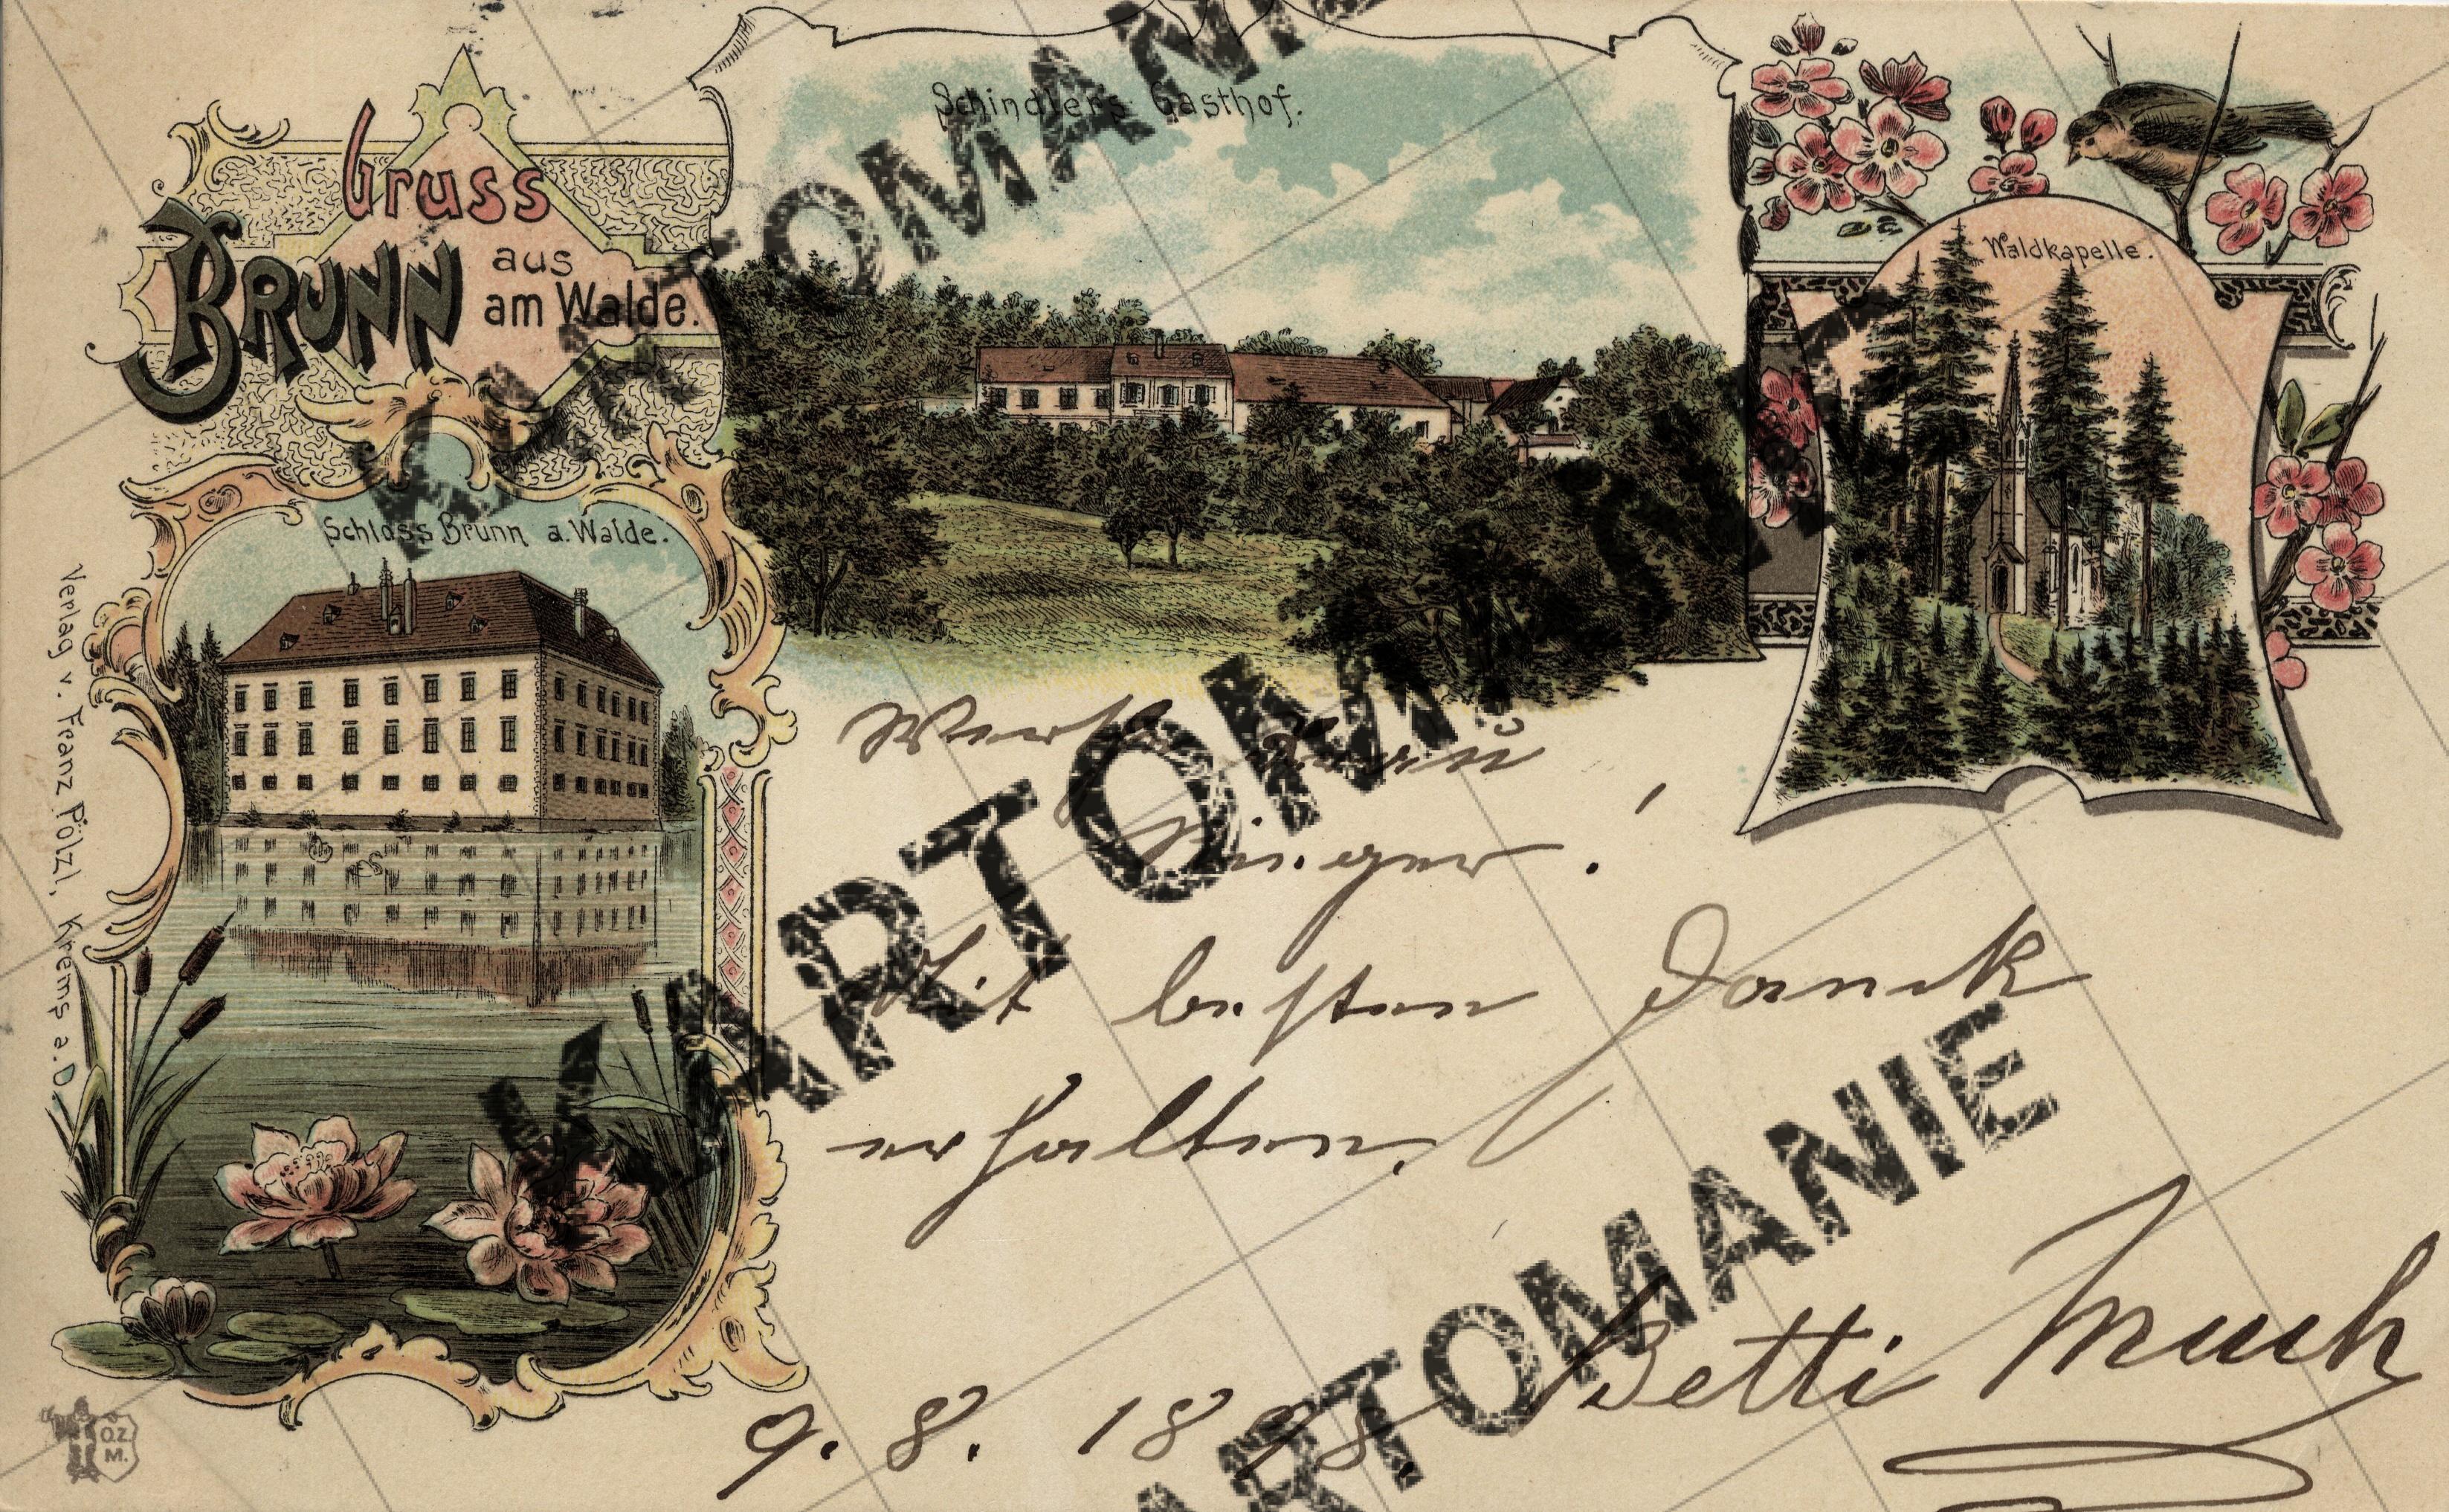 Gruss
aus
BRUNN am Walde.
Schindlers Gasthof.
Waldkapelle.
Schloss Brunn a. Walde.
Verlag v. Franz Pölzl, Krems a. D.
Werthe Frau
!
Mit besten Dank
erhalten.
Betti Much
9. 8. 1898.
O.Z.
M.
KARTOMANIE
KARTOMANIE
KARTOMANIE
KARTOMANIE